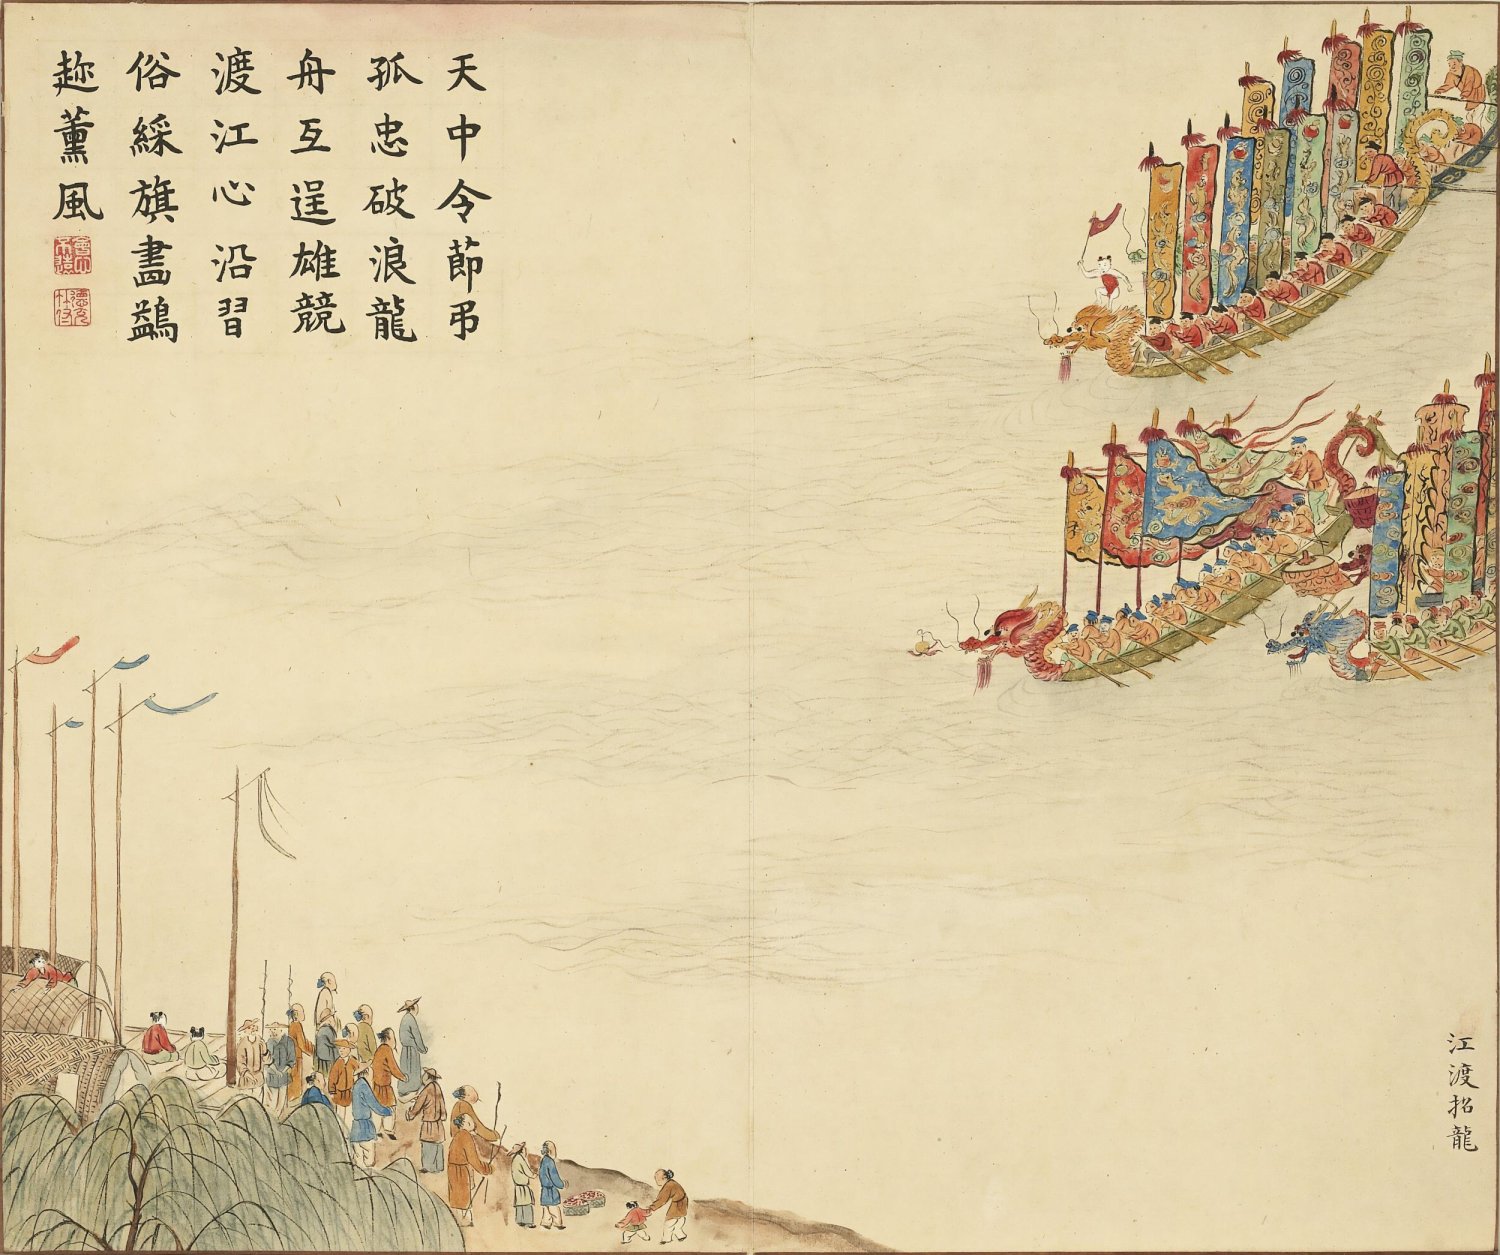 天中令節弔
孤忠破浪龍
舟互逞雄競
渡江心沿習
俗綵旗畫鷁
趂薰風
江渡招龍